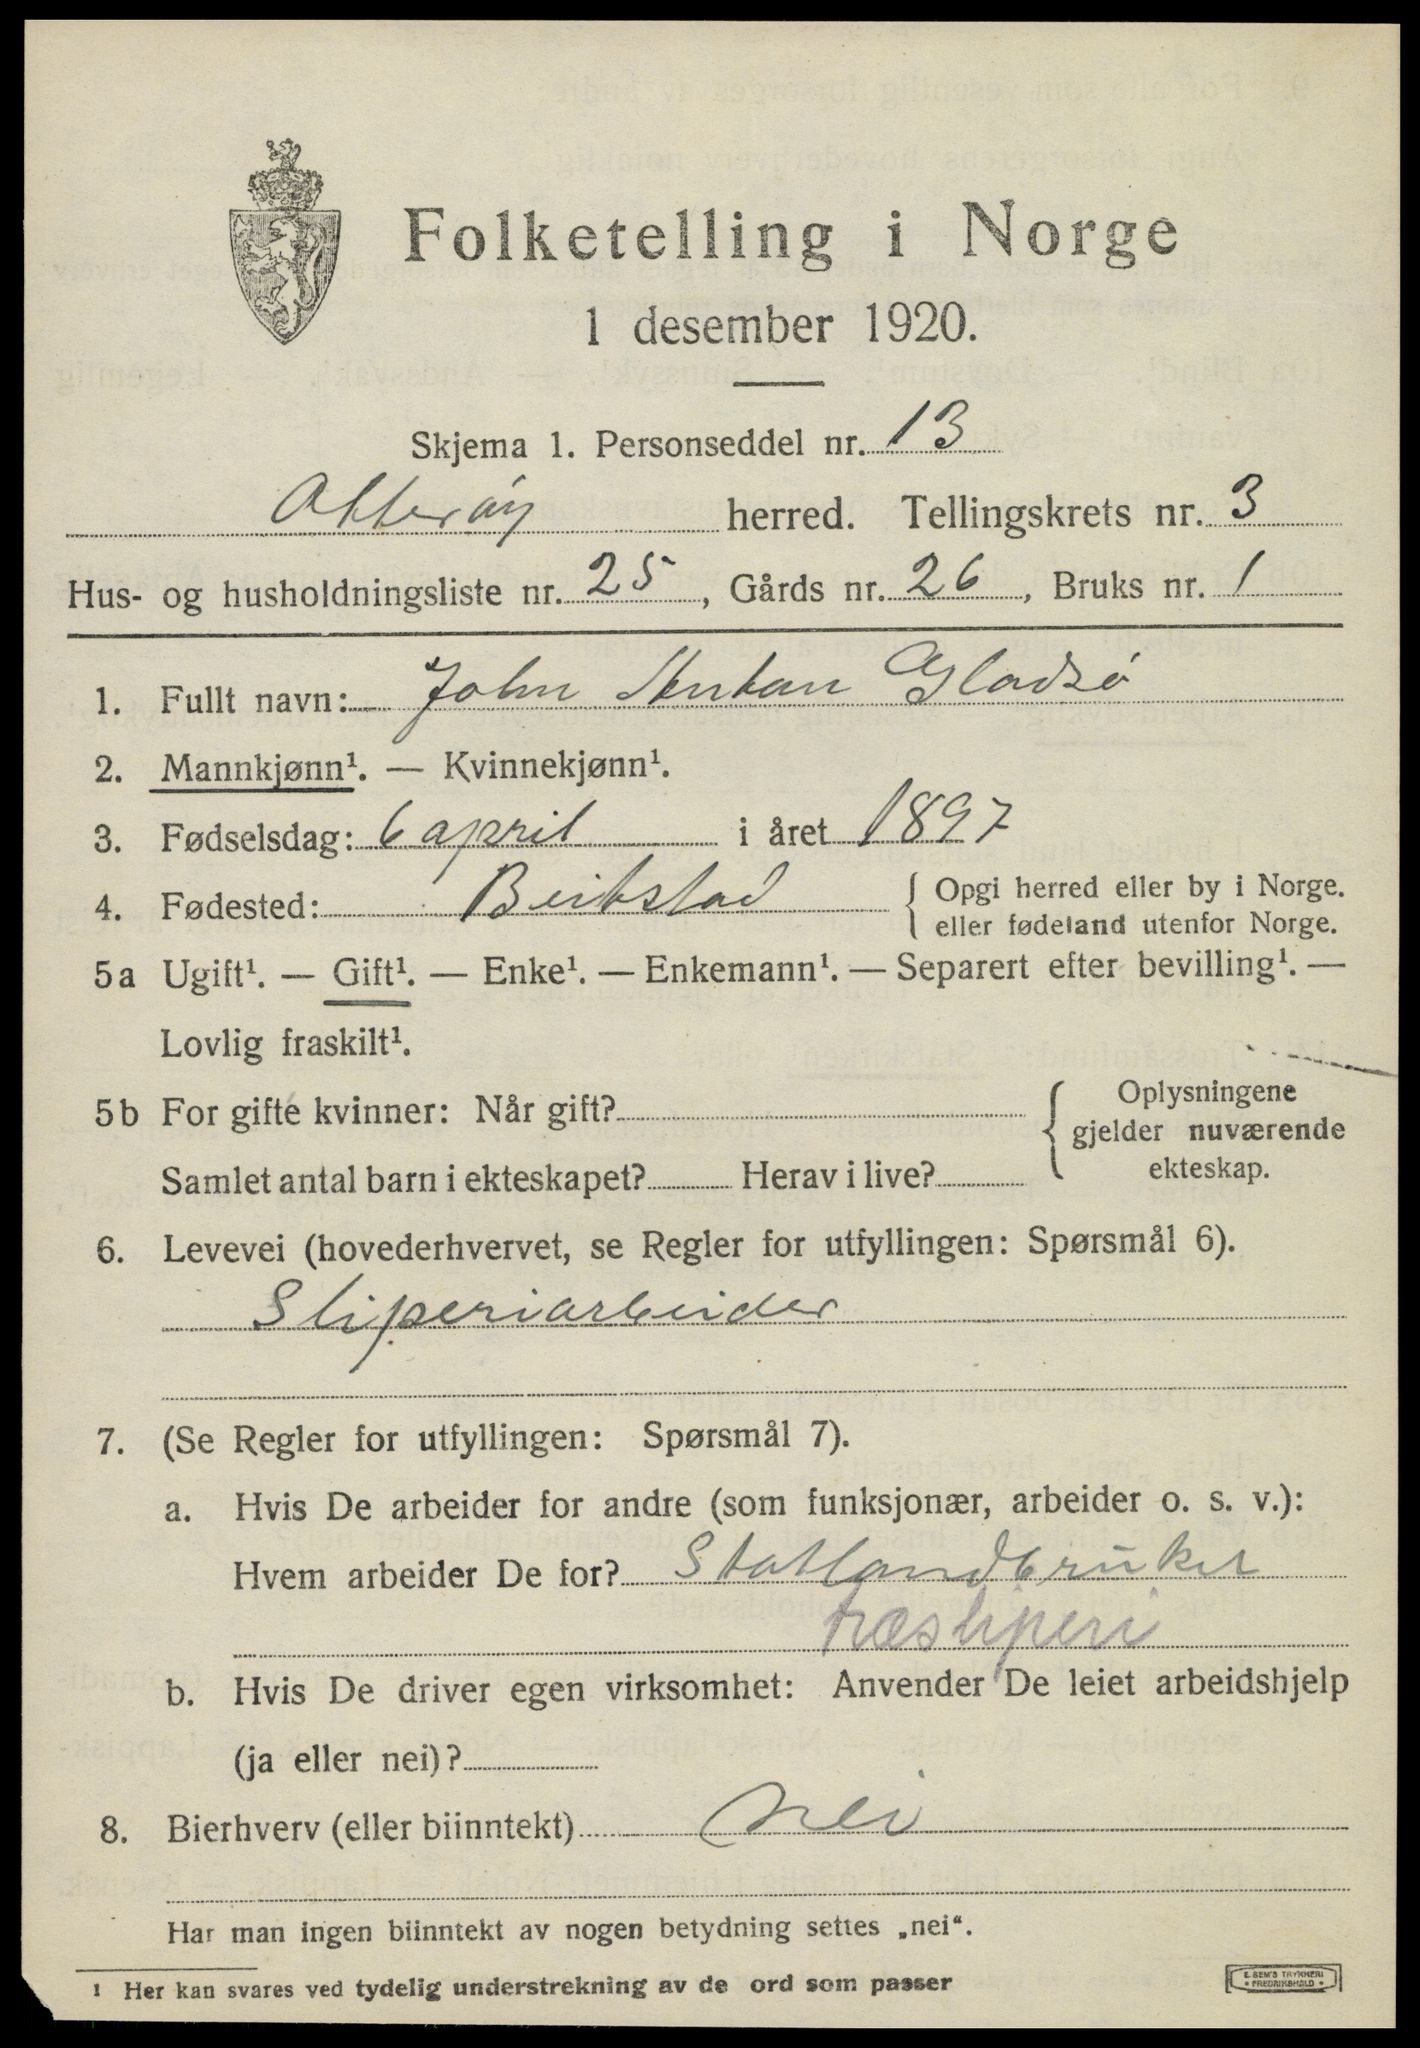 Folketelling i Norge
1 desember 1920.
Skjema 1. Personseddel nr. 13
Otterøy herred. Tellingskrets nr. 3
Hus- og husholdningsliste nr. 25, Gårds nr. 26, Bruks nr. 1
1. Fullt navn: John Gladsø
2. Mannkjønn¹. — Kvinnekjønn¹.
3. Fødselsdag: 6 april i året 1897
4. Fødested: Beitstad { Opgi herred eller by i Norge.
eller fødeland utenfor Norge.
5a Ugift¹. — Gift¹. — Enke¹. — Enkemann¹. — Separert efter bevilling¹. —
Lovlig fraskilt¹.
5b For gifte kvinner: Når gift?
Samlet antal barn i ekteskapet? Herav i live?
{ Oplysningene
gjelder nuværende
ekteskap.
6. Levevei (hovederhvervet, se Regler for utfyllingen: Spørsmål 6).
Sliperiarbeider
7. (Se Regler for utfyllingen: Spørsmål 7).
a. Hvis De arbeider for andre (som funksjonær, arbeider o. s. v.):
Hvem arbeider De for? Statlandbruket
træsliperi
b. Hvis De driver egen virksomhet: Anvender De leiet arbeidshjelp
(ja eller nei)?
8. Bierhverv (eller biinntekt) Nei
Har man ingen biinntekt av nogen betydning settes „nei“.
1 Her kan svares ved tydelig understrekning av de ord som passer
E. SEM'S TRYKKERI
• FREDRIKSHALD •